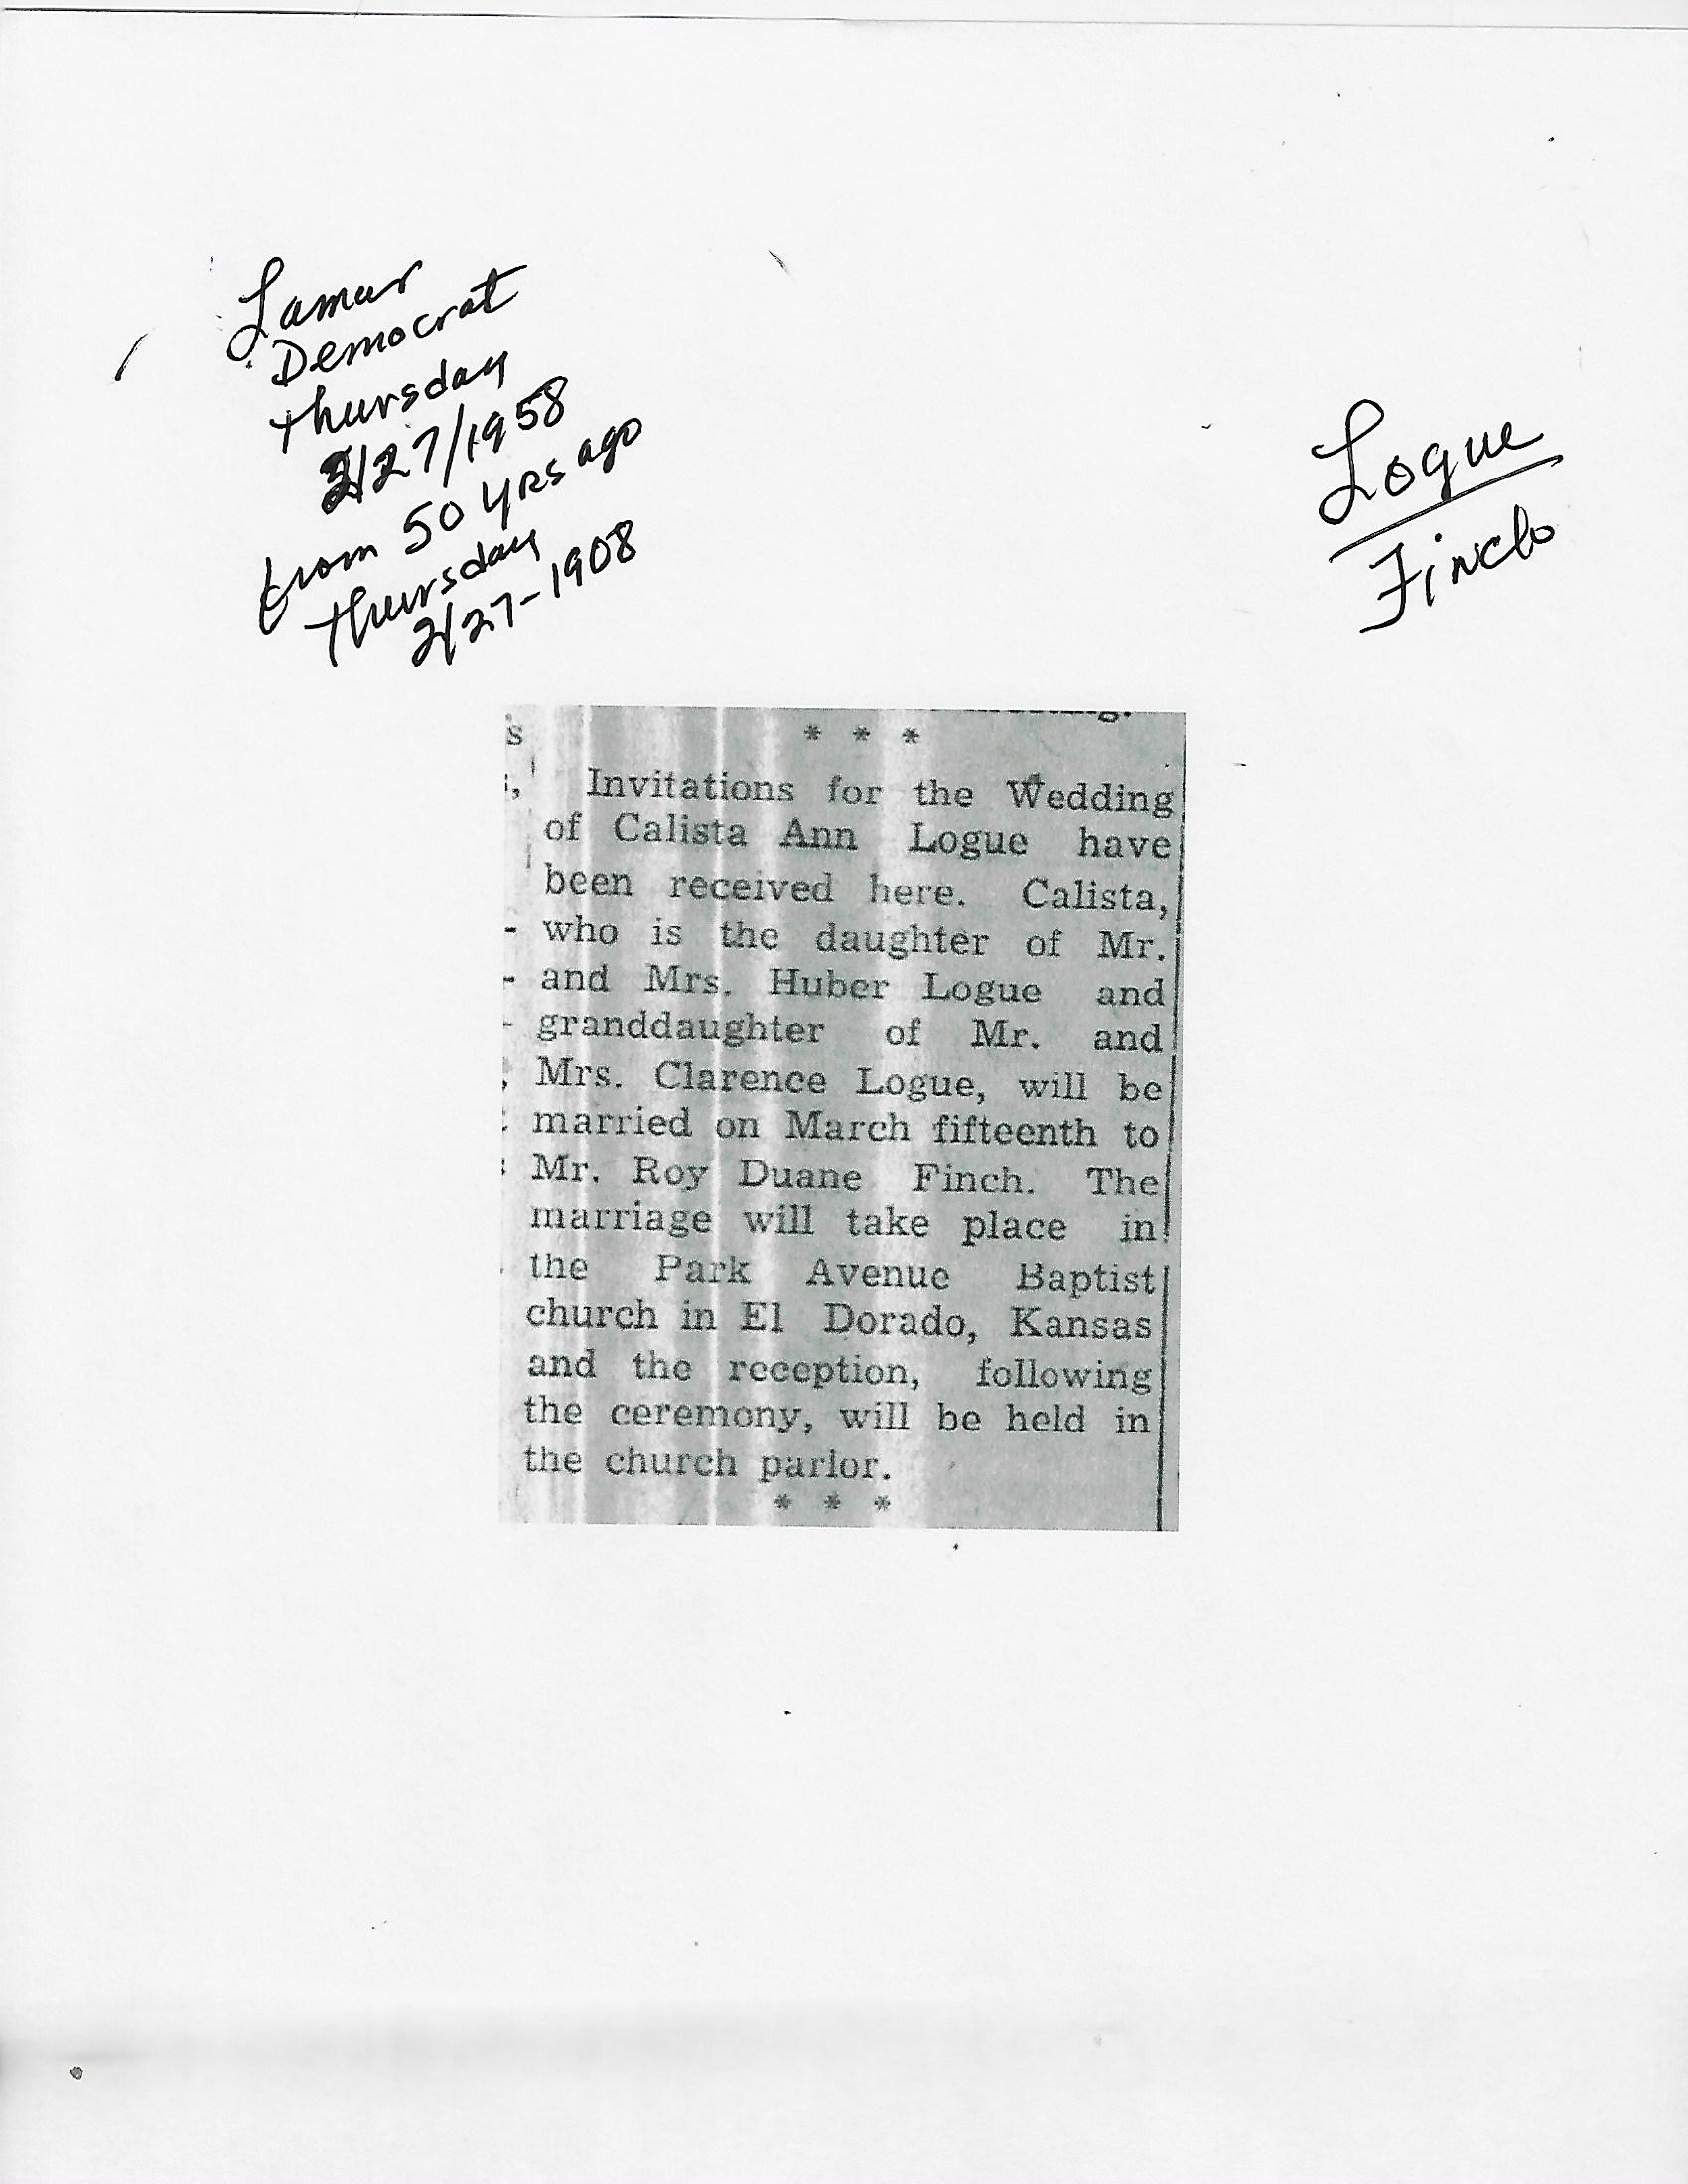 Lamar
Democrat
Thursday
2/27/1958
from 50 yrs ago
Thursday
2/27-1908
Logue
Finch
* * *
Invitations for the Wedding
of Calista Ann Logue have
been received here. Calista,
who is the daughter of Mr.
and Mrs. Huber Logue and
granddaughter of Mr. and
Mrs. Clarence Logue, will be
married on March fifteenth to
Mr. Roy Duane Finch. The
marriage will take place in
the Park Avenue Baptist
church in El Dorado, Kansas
and the reception, following
the ceremony, will be held in
the church parlor.
* * *